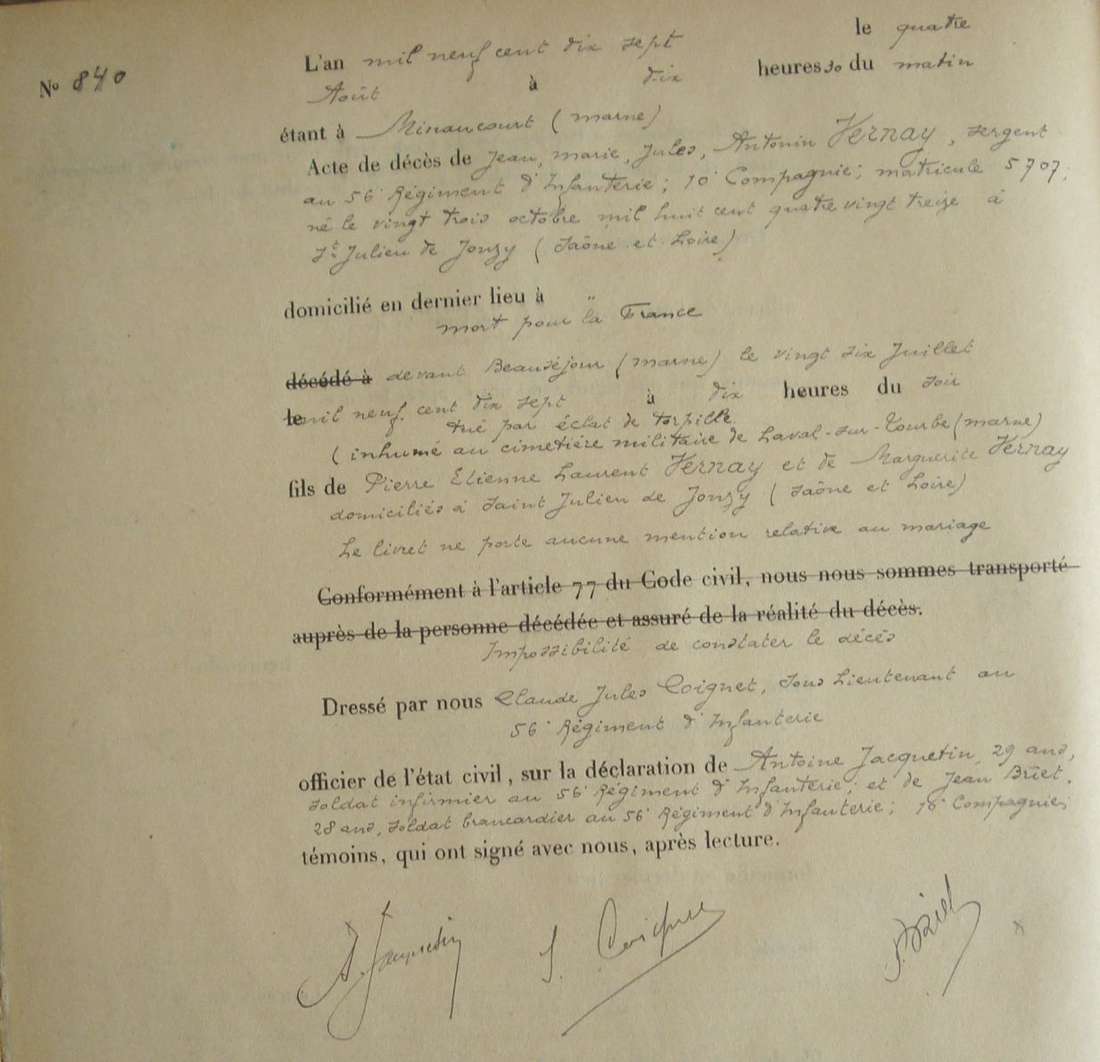 Nº 840
L'an mil neuf cent dix sept le quatre
Août à dix heures 30 du matin
étant à Minaucourt (marne)
Acte de décès de Jean, marie, Jules, Antonin Vernay, sergent
au 56e Régiment d'Infanterie; 10e Compagnie; matricule 5707;
né le vingt trois octobre mil huit cent quatre vingt treize à
St Julien de Jonzy (Saône et Loire)
domicilié en dernier lieu à "
mort pour la France
décédé à devant Beauséjour (marne) le vingt six Juillet
le mil neuf cent dix sept à dix heures du soir
tué par éclat de torpille
(inhumé au cimetière militaire de Laval-sur-Tourbe (marne)
fils de Pierre Etienne Laurent Vernay et de Marguerite Vernay
domiciliés à Saint Julien de Jonzy (Saône et Loire)
Le livret ne porte aucune mention relative au mariage
Conformément à l'article 77 du Code civil, nous nous sommes transporté
auprès de la personne décédée et assuré de la réalité du décès.
Impossibilité de constater le décès
Dressé par nous Claude Jules Coignet, Sous Lieutenant au
56e Régiment d'Infanterie
officier de l'état civil, sur la déclaration de Antoine Jacquetin, 29 ans,
soldat infirmier au 56e Régiment d'Infanterie; et de Jean Briet,
28 ans, soldat brancardier au 56e Régiment d'Infanterie; 10e Compagnie;
témoins, qui ont signé avec nous, après lecture.
A. Jacquetin J. Coignet J. Briet